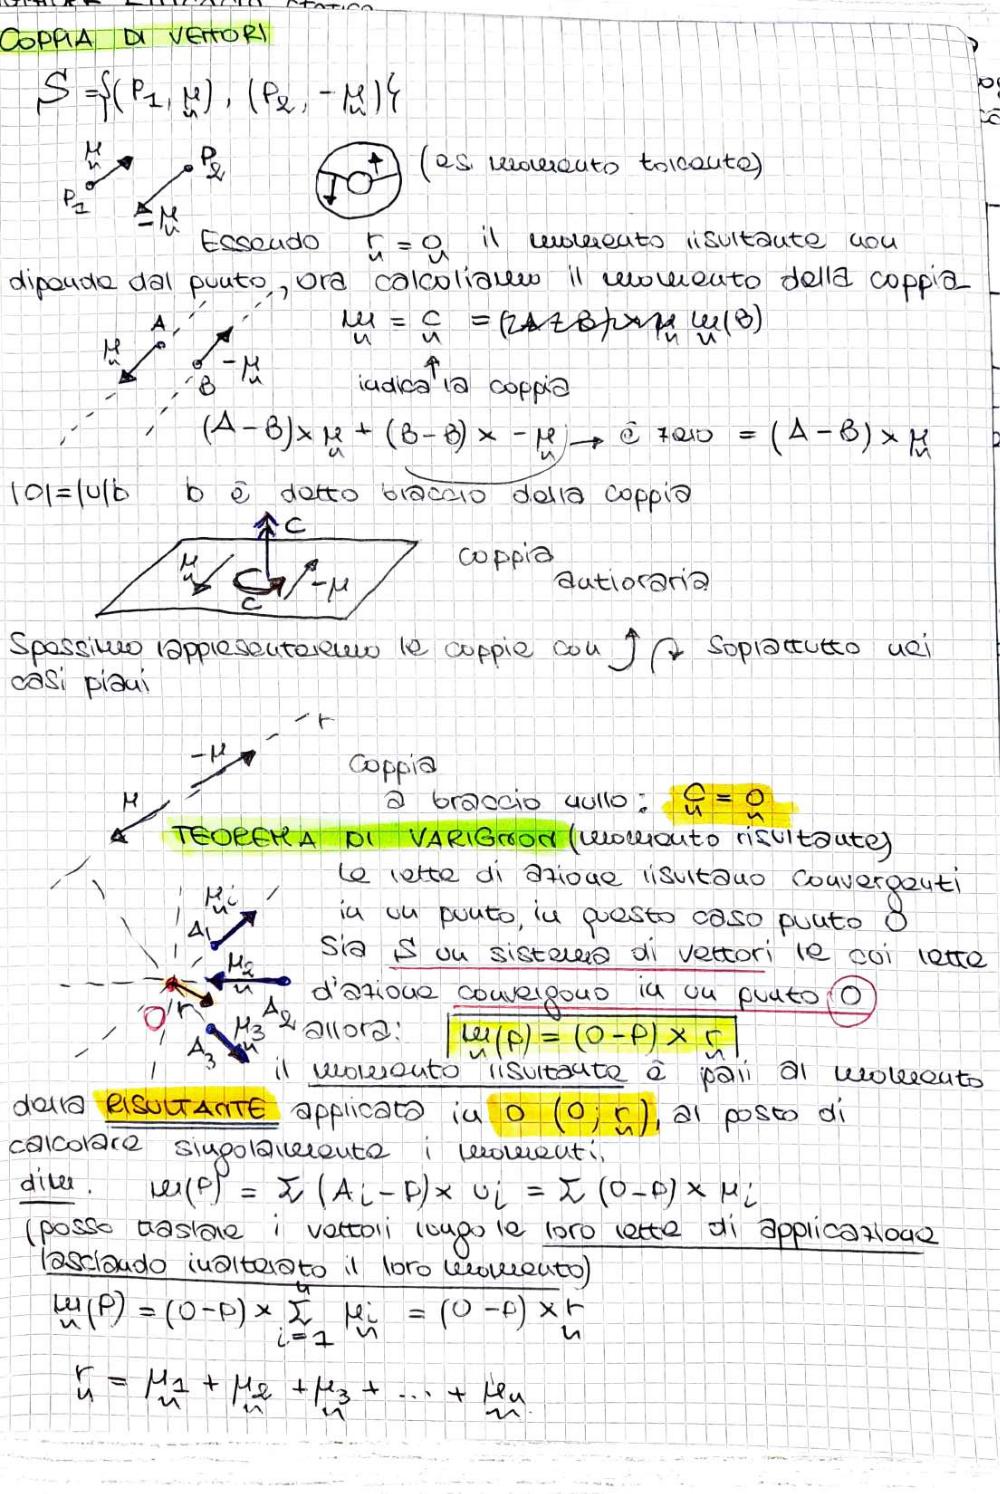 COPPIA DI VETTORI
S = {(P1, u), (P2, -u)}
u P2 (es. momento torcente)
P1 -u
Essendo r = 0 il momento risultante non
dipende dal punto, ora calcoliamo il momento della coppia
A m = c = m(B)
u -u
B indica la coppia
(A-B)× u + (B-B) × -u → è zero = (A-B) × u
|C|=|U|b b è detto braccio della coppia
C
u -u coppia
C antioraria
Spessimo rappresenteremo le coppie con soprattutto nei
casi piani
r
-u coppia
u a braccio nullo: c = 0
TEOREMA DI VARIGNON (momento risultante)
Le rette di azione risultano convergenti
ui in un punto, in questo caso punto O
A1 Sia S un sistema di vettori le cui rette
u2 d'azione convergono in un punto O
O r A2 u3 allora: m(P) = (O-P) × r
A3 il momento risultante è pari al momento
della RISULTANTE applicata in O (O; r), al posto di
calcolare singolarmente i momenti.
dim. m(P) = Σ (Ai-P)× Ui = Σ (O-P) × ui
(posso traslare i vettori lungo le loro rette di applicazione
lasciando inalterato il loro momento)
m(P) = (O-P) × Σ ui = (O-P) × r
n
i=1
r = u1 + u2 + u3 + ... + un